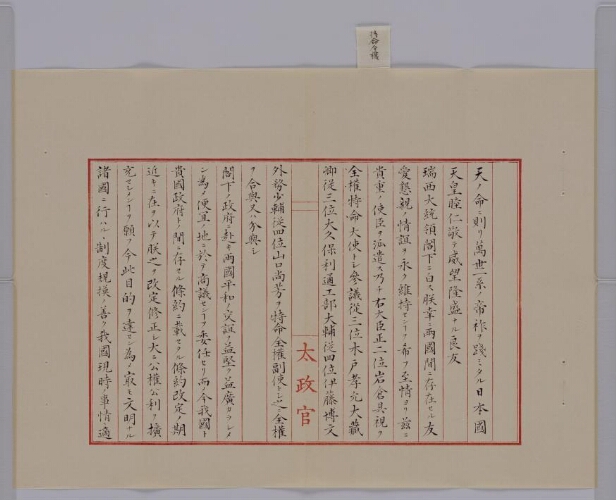 天ノ命ニ則リ萬世一系ノ帝祚ヲ踐ミタル日本國
天皇睦仁敬テ威望隆盛ナル良友
瑞西大統領閣下ニ白ス朕幸ニ兩國間ニ存在セル友
愛懇親ノ情誼ヲ永ク維持センヿヲ希フ至情ヨリ茲ニ
貴重ノ使臣ヲ派遣ス乃シ右大臣正二位岩倉具視ヲ
全權特命大使トシ參議從三位木戸孝允大藏
卿從三位大久保利通工部大輔從四位伊藤博文
太政官
外務少輔從四位山口尚芳ヲ特命全權副使トシ之ニ全權
ヲ合與ス分與シ
閣下ノ政府ニ赴キ兩國平和ノ交誼ヲ益堅ク益廣カラシメ
ン為メ便宜ノ地ニ於テ商議センヿヲ委任セリ而今我國ト
貴國政府ト間ニ存セル條約ニ載セタル條約改定ノ期
近キニ在ルヲ以テ朕之ヲ改定修正シ大ニ公權公利ヲ擴
充セシメンヿヲ願フ今此目的ヲ達セン為メ最モ文明ナル
諸國ニ行ハルヽ制度規模ノ善ク我國現時事情適